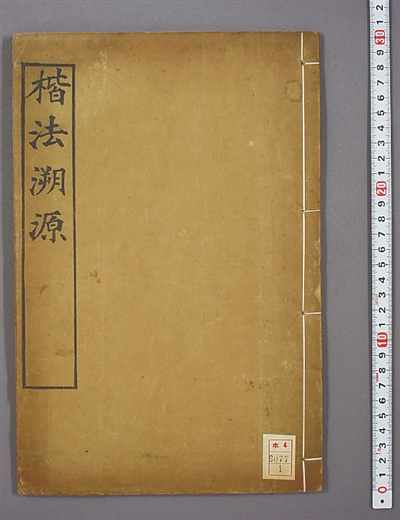 楷法溯源
水 4
6077
1
2
1
30
9
8
7
6
5
4
3
2
1
20
9
8
7
6
5
4
3
2
1
10
9
8
7
6
5
4
3
2
1
0